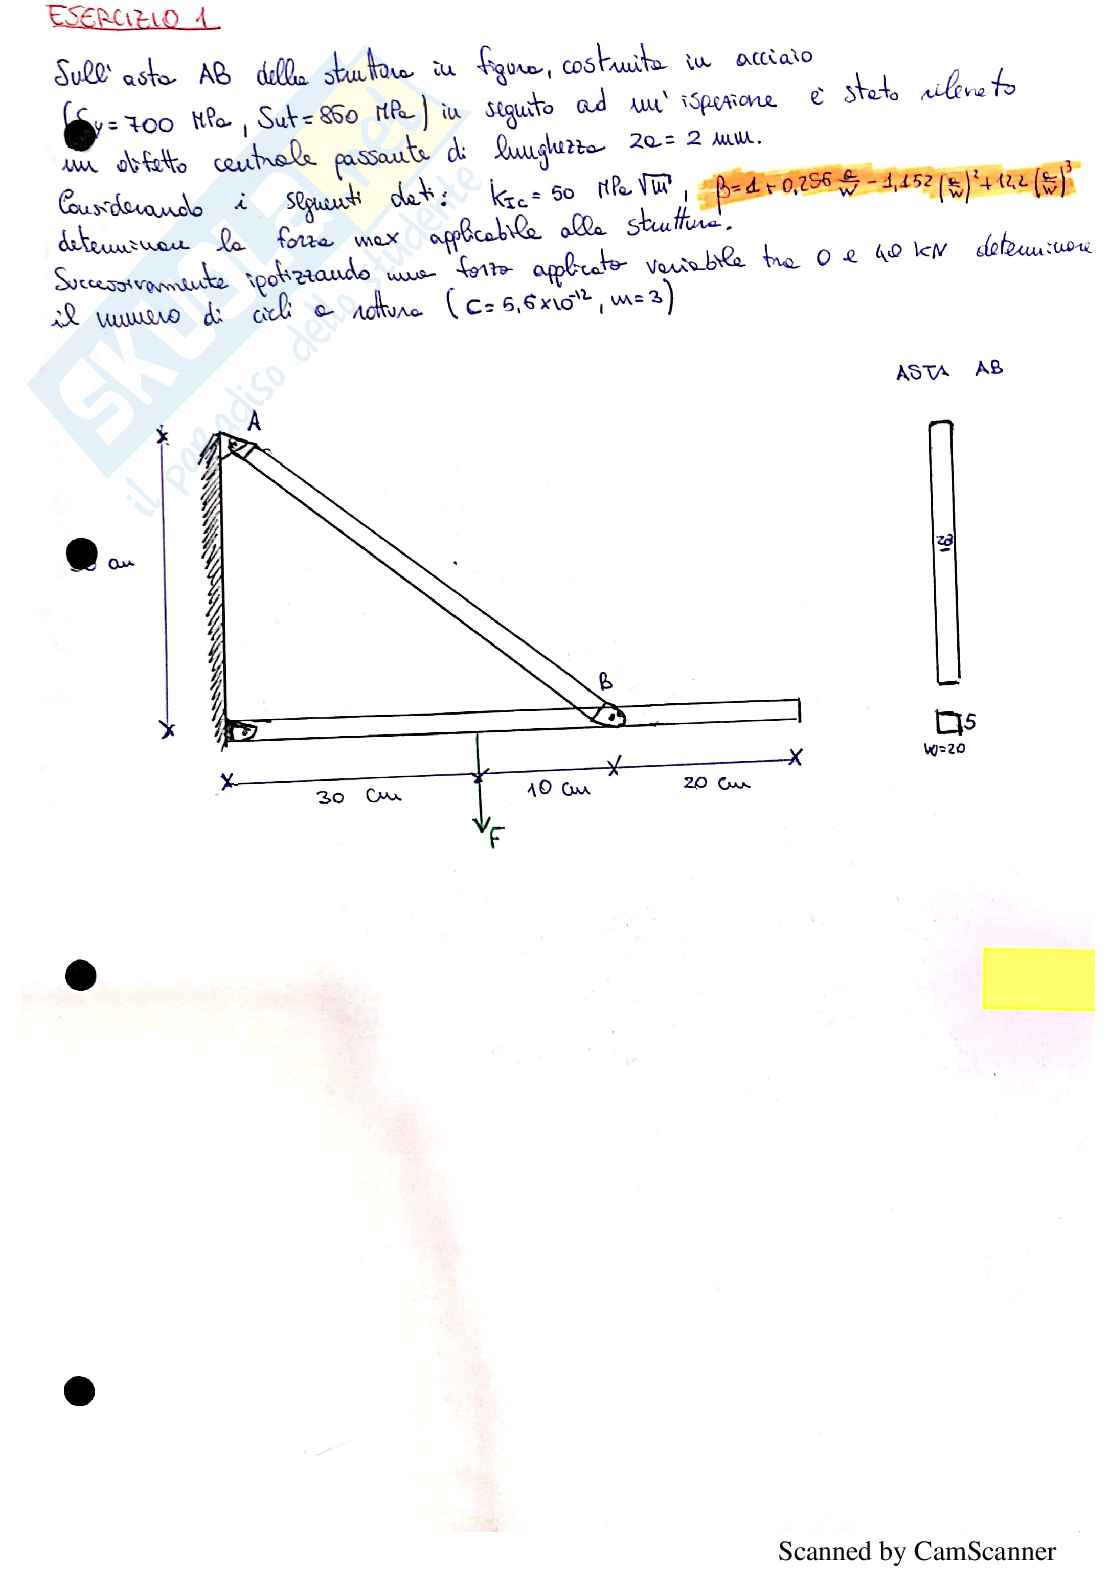 ESERCIZIO 1
Sull' asta AB della struttura in figura, costruita in acciaio
(Sy = 700 MPa, Sut = 860 MPa) in seguito ad un' ispezione è stato rilevato
un difetto centrale passante di lunghezza 2a = 2 mm.
Considerando i seguenti dati: KIC = 50 MPa √m, β = 1 + 0,256 a/W - 1,152 (a/W)² + 12,2 (a/W)³
determinare la forza max applicabile alla struttura.
Successivamente ipotizzando una forza applicata variabile tra 0 e 40 kN determinare
il numero di cicli a rottura (C = 5,6 x 10⁻¹², m = 3)
SKUOLA.net
il paradiso dello studente
ASTA AB
A
cm
2a
B
5
W=20
30 cm
10 cm
20 cm
F
Scanned by CamScanner